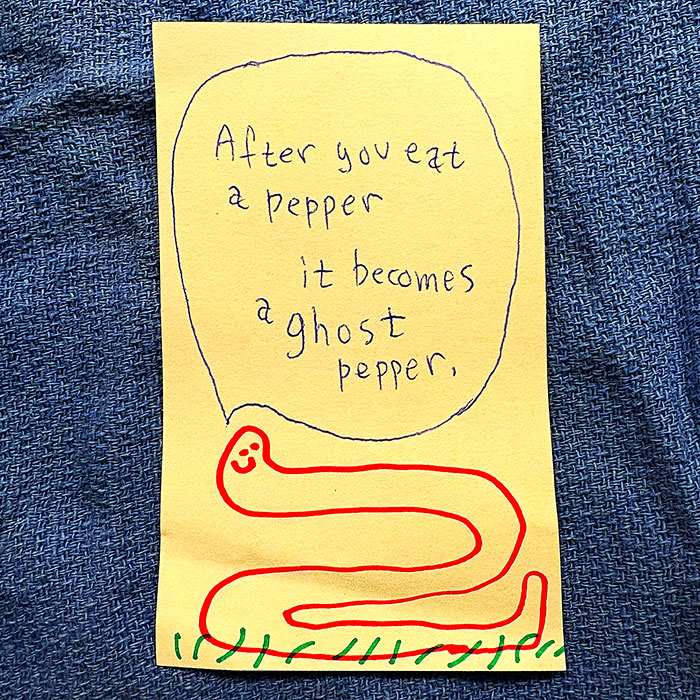 After you eat
a pepper
it becomes
a ghost
pepper.